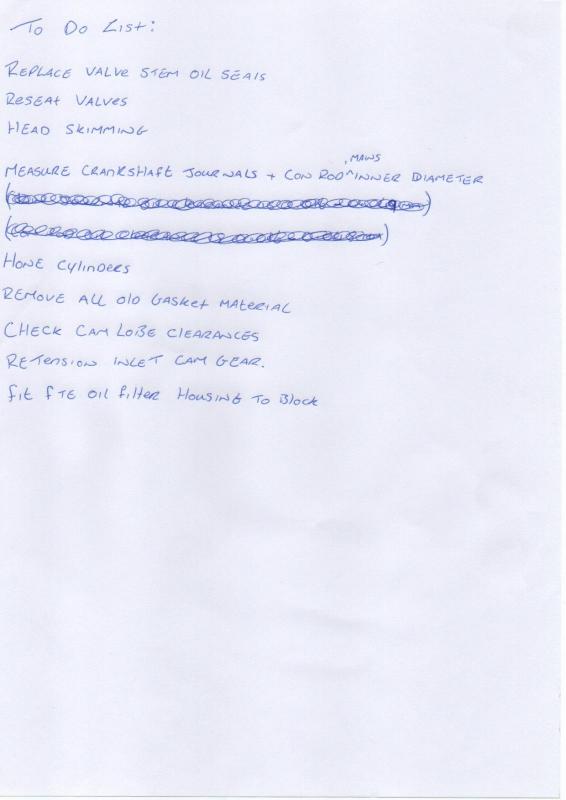 To Do List:
REPLACE VALVE STEM OIL SEAlS
ReSEAt VALVeS
HEAD SKIMMING
, MAINS
MEASURE CRANKSHAFT JOURNALS + CON ROD ^ INNER DIAMETER
HONE CYlINDeRS
REMOVE ALL OlD GASKet MATeRIAL
CHECK CAM LOBE CLEARANCES
RETeNSION INLET CAM GEAR.
fit fTE OIL filter HOUSING TO Block